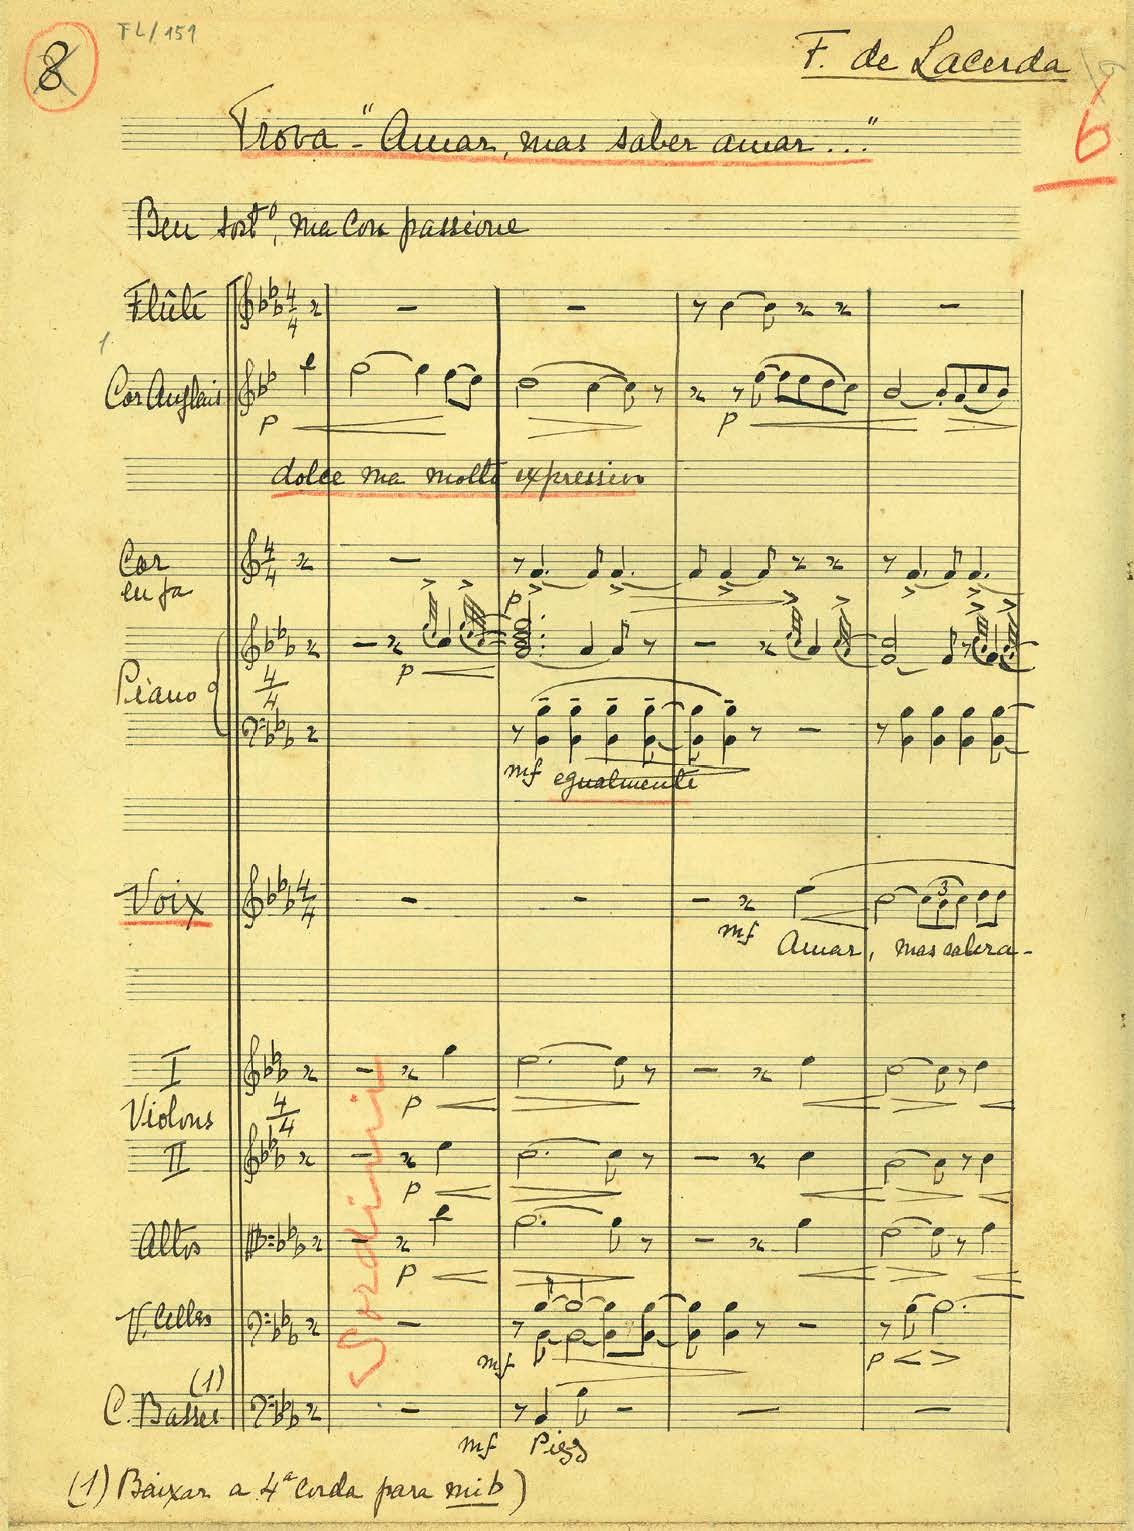 8 FL/151
F. de Lacerda
6
Trova - "Amar, mas saber amar..."
Ben sostº, ma con passione
Flûte 4/4
1.
Cor Anglais
p p
dolce ma molto expressivo
Cor en fa 4/4
p
p
Piano 4/4
mf egualmente
Voix 4/4
3
mf
Amar, mas saber a-
I
p
Violons 4/4
II
p
Sordini
Altos
p
V. Celles
mf p
(1)
C. Basses
mf Pizz
(1) Baixar a 4ª corda para mi b)